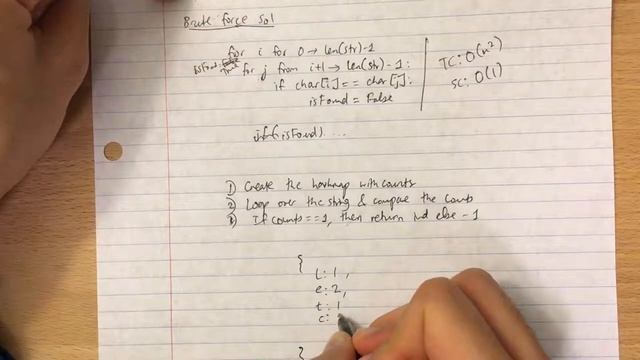 Brute force sol
for i for 0 → len(str)-1
isFound = True for j from i+1 → len(str)-1:
if char[i] == char[j]:
isFound = False
if (isFound) ...
TC: O(n²)
SC: O(1)
1) Create the hashmap with counts
2) Loop over the string & compare the counts
3) If counts == 1, then return ind else -1
{
l: 1,
e: 2,
t: 1
c:
}